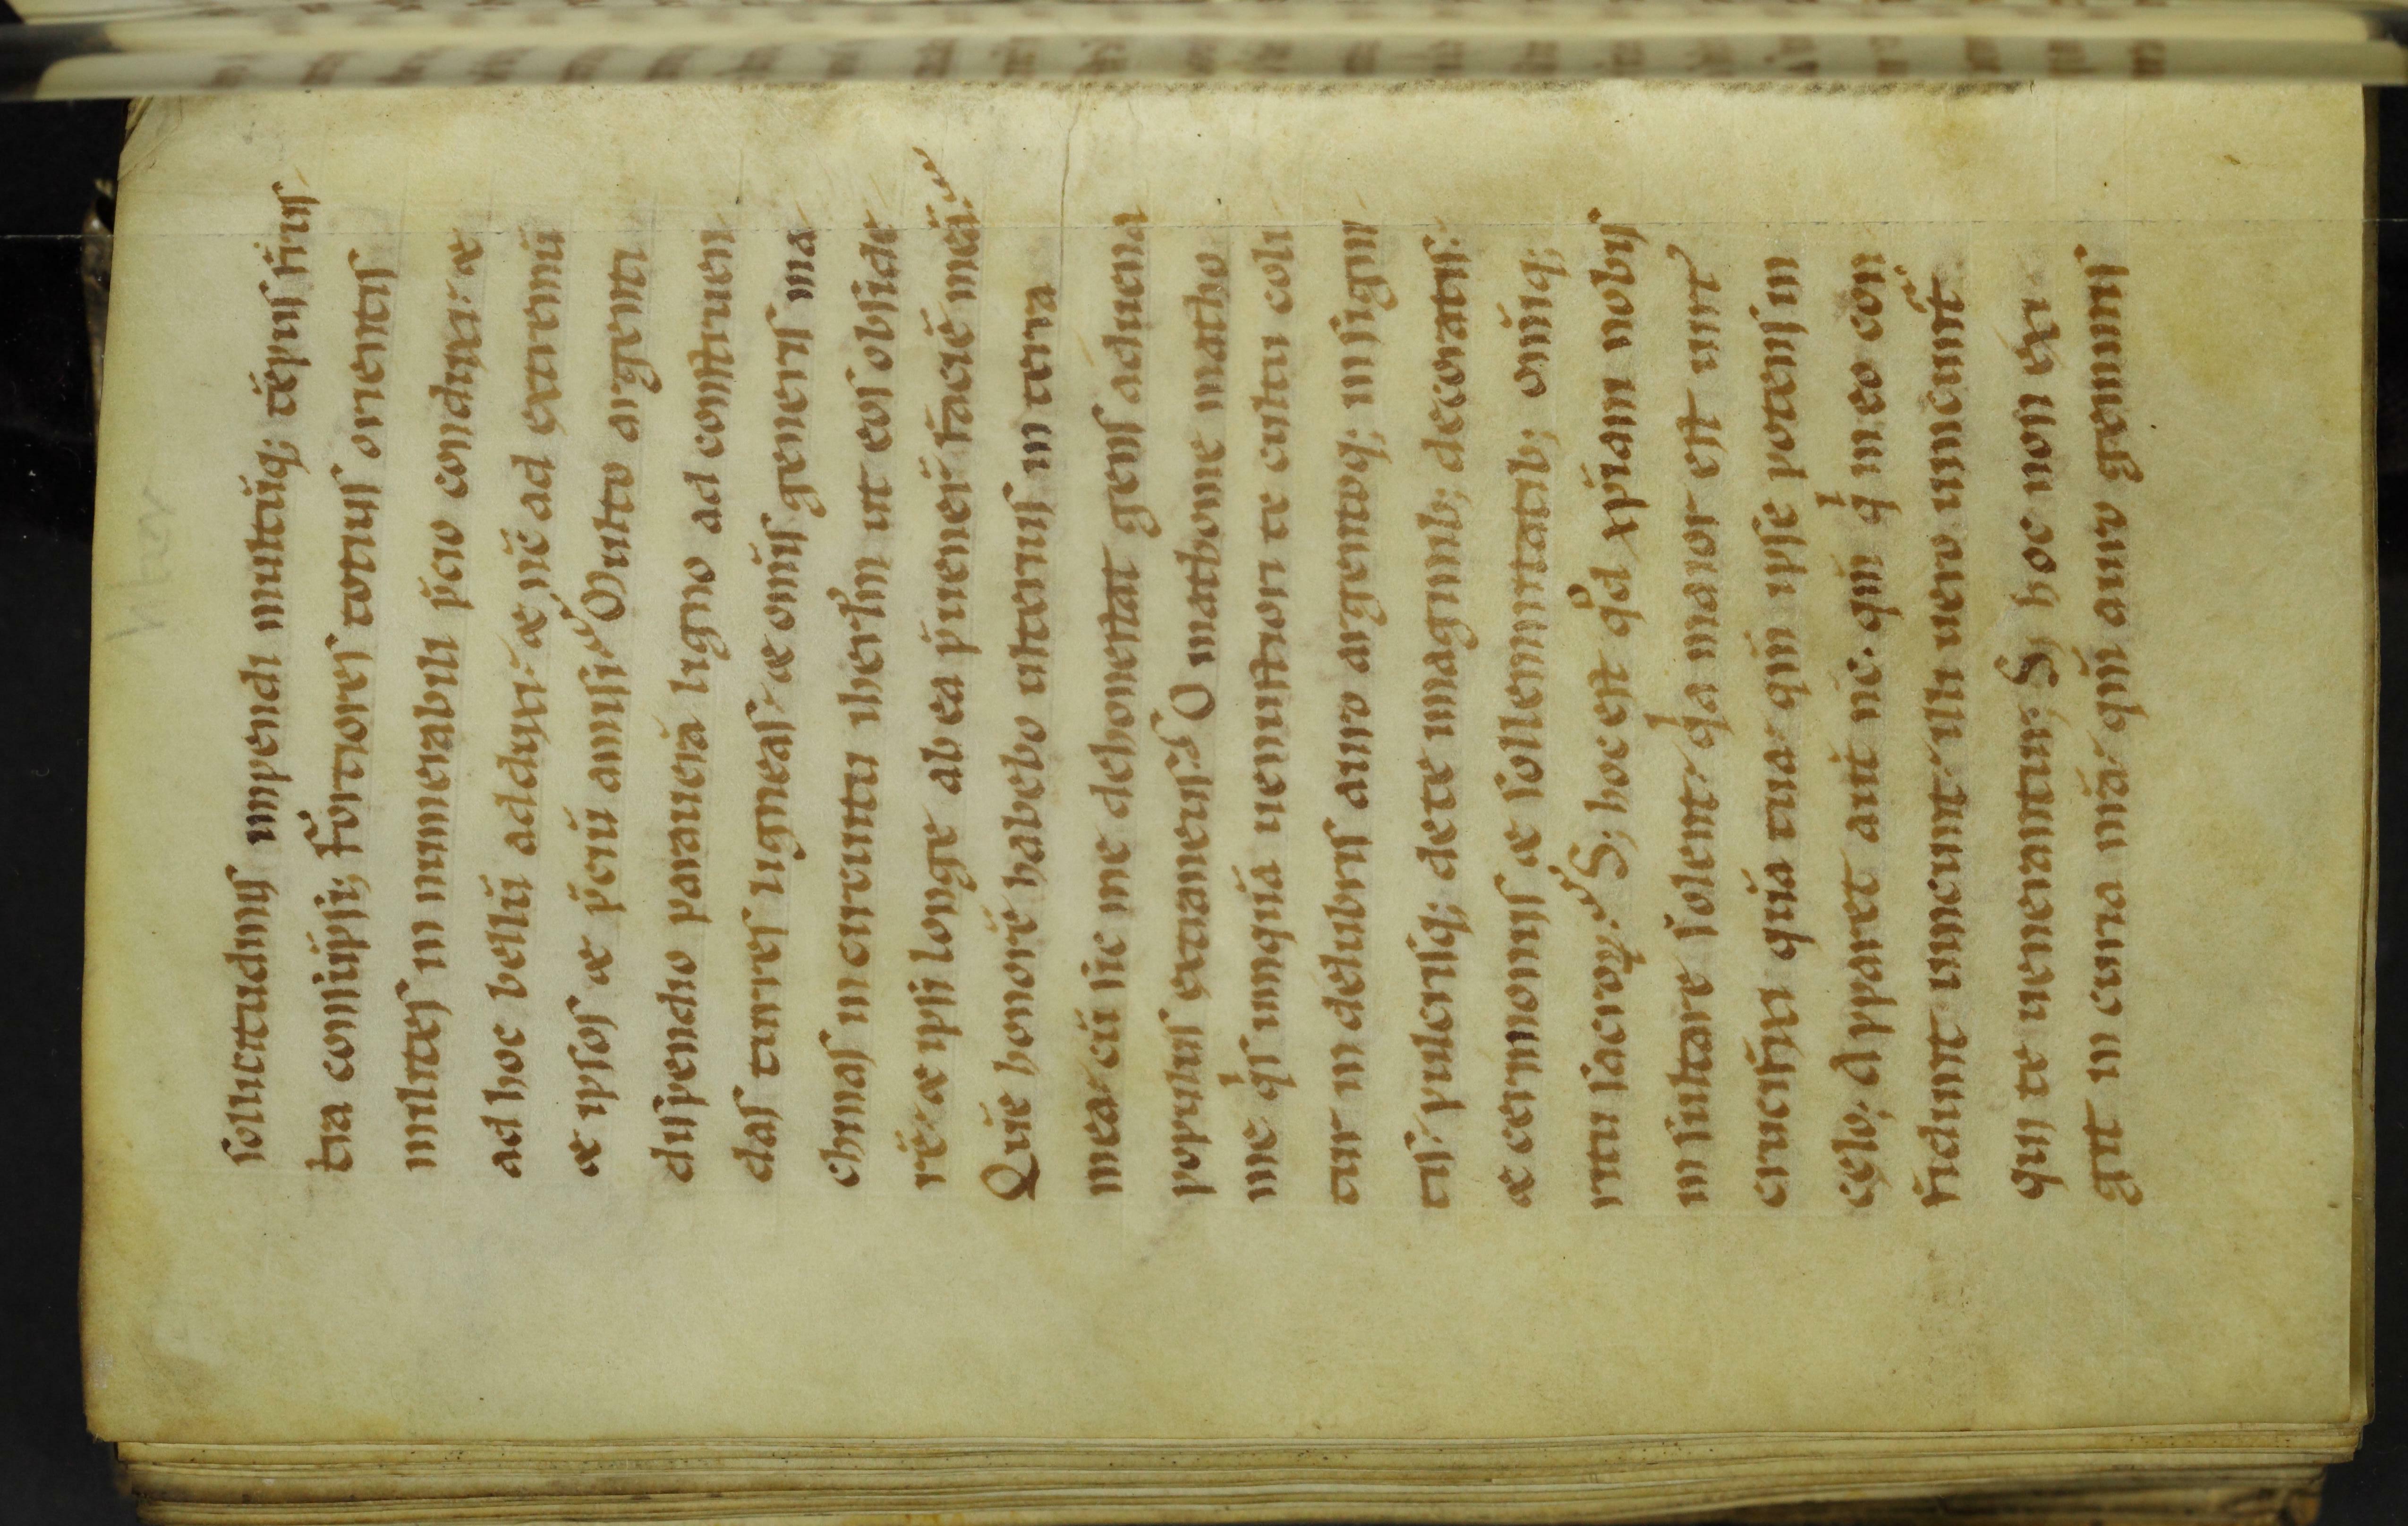 sollicitudinis impendi multūq; tēpus frus
tra consūpsi; Fortiores totius orientis
milites in numerabili p̄cio conduxi: &
ad hoc bellū adduxi: & nūc ad extremū
& ipsos & p̄ciū amisi; Multo argenti
dispendio paraueră ligno ad construen
das turres ligneas: & om̄is generis ma
chinas in circuitu iherlm̄ ut eos obside
rē: & ipsi longe ab ea p̄uener̄ faciē meā;
Quē honorē habebo ulterius in terra
mea: cū sic me dehonestat gens aduena
populus extraneus; O mathome matho
me qͥs umquā uenustiori te cultu coli
tur in delubris auro argentoq; insigni
tis: pulcrisq; de te imaginib; decoratis:
& cerimoniis & sollemnitatib; om̄iq;
ritu sacroꝝ; S; hoc est qͦd xp̄iani nobis
insultare solent: qͥa maior est uirt̾
crucifixi quā tua: qm̄ ipse potens in
cęlo; Apparet aut̄ nc̄. qm̄ qͥ in eo con
fidunt uincunt: illi uero uincunt̾
qui te uenerantur; S; hoc non exi
git in curia nr̄a: qm̄ auro gemmis